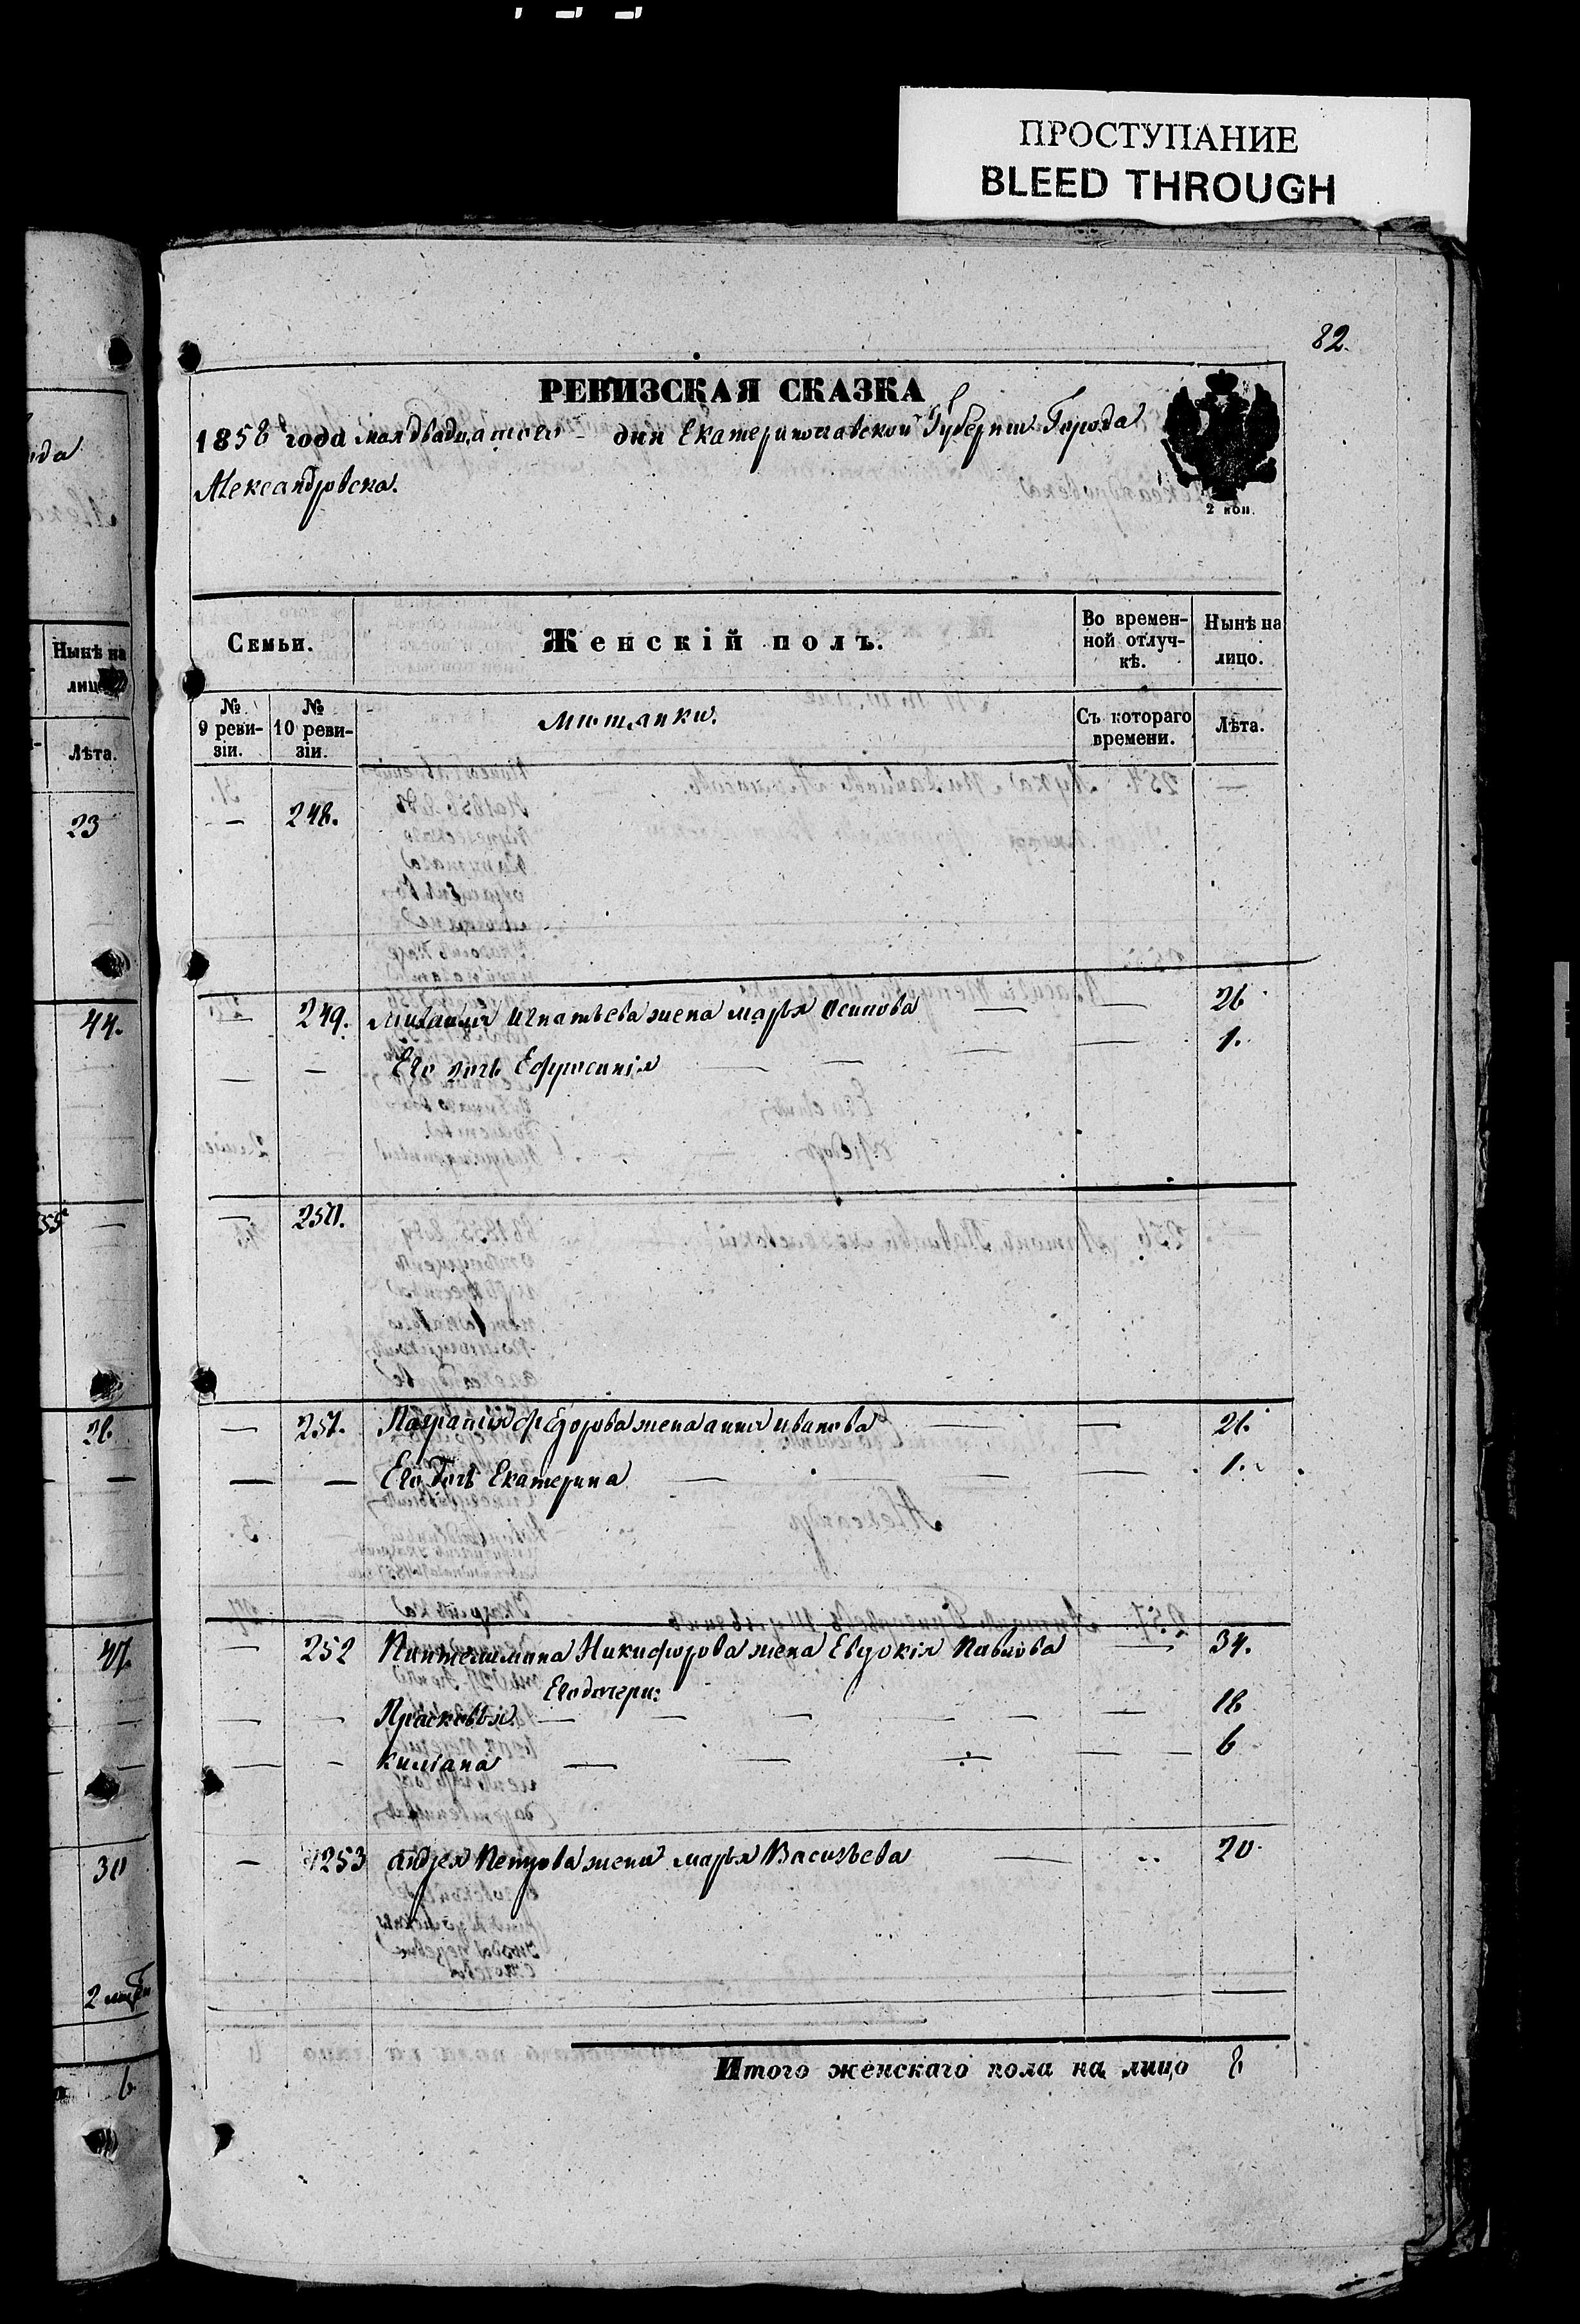 ПРОСТУПАНИЕ
BLEED THROUGH
82.
РЕВИЗСКАЯ СКАЗКА
1858 года мая двадцатого дня Екатеринославской Губернии Города
Александровска.
2 коп.
Семьи.
Женскій полъ.
Во времен-
ной отлуч-
кѣ.
Нынѣ на
лицо.
№
9 реви-
зіи.
№
10 реви-
зіи.
Мищанки.
Съ котораго
времени.
Лѣта.
— 248.
249. Михаила Игнатьева жена марья Осипова — — 26
— — Его дочь Ефросинія — — — 1.
— 250.
— 251. Федорова жена анна иванова — — 26.
— — Его дочь Екатерина — — — 1.
— 252 Никифорова жена Евдокія Павлова — — 34.
Его дочери:
— — Прасковья — — — — — 18
— — — — — — 6
— 253 андрея Петрова жена марья Васильева — 20.
Итого женскаго пола на лицо 8
ода
Нынѣ на
лицо
Лѣта.
23
44.
26
47.
30
6